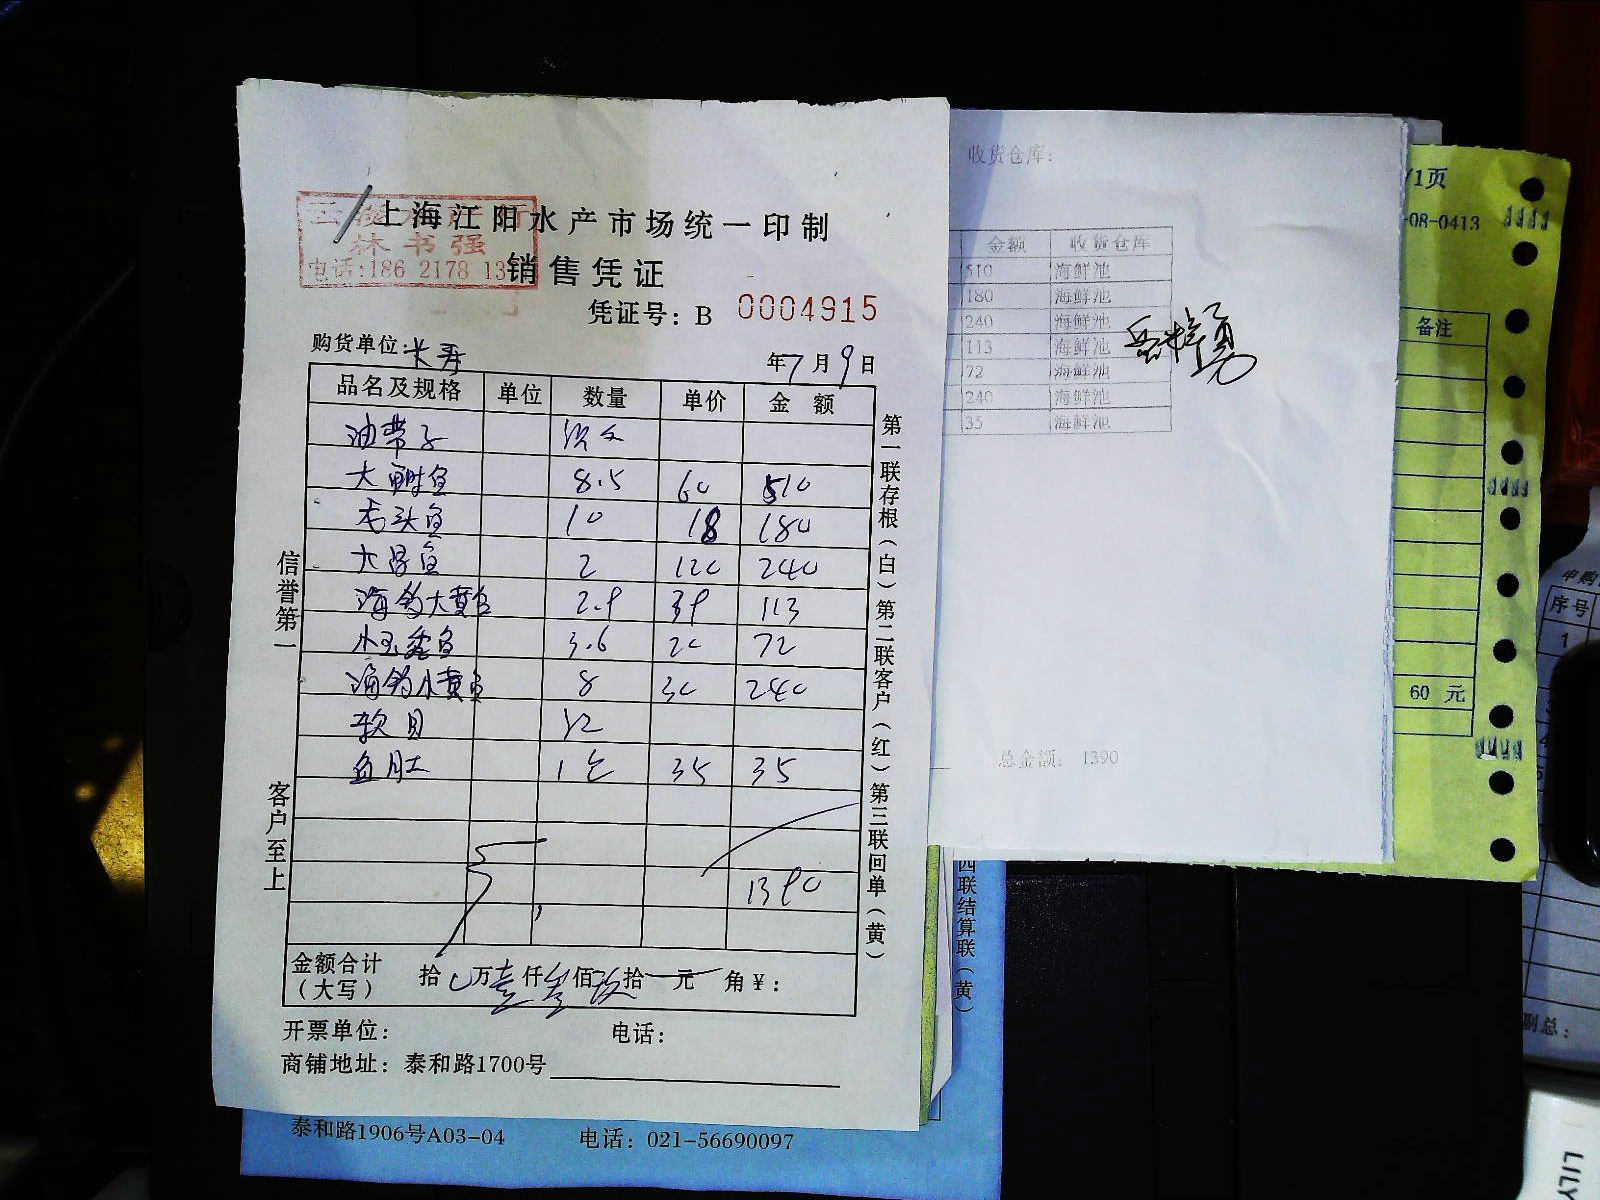 上海江阳水产市场统一印制
林书强
电话:186 2178 13
销售凭证
凭证号: B 0004915
购货单位: 长寿
年7月9日
品名及规格 单位 数量 单价 金额
油带子
大鲥鱼 8.5 60 510
老头鱼 10 18 180
大昌鱼 2 120 240
海钓大黄鱼 2.9 39 113
小玉秃鱼 3.6 20 72
海钓小黄鱼 8 30 240
软目
鱼肚 1包 35 35
1390
金额合计（大写） 拾 万壹仟叁佰玖拾 元 角¥:
开票单位: 电话:
商铺地址: 泰和路1700号
信誉第一
客户至上
第一联存根（白）第二联客户（红）第三联回单（黄）
收货仓库:
金额 收货仓库
510 海鲜池
180 海鲜池
240 海鲜池
113 海鲜池
72 海鲜池
240 海鲜池
35 海鲜池
总金额: 1390
/1页
-08-0413
备注
60 元
四联结算联（黄）
泰和路1906号A03-04 电话: 021-56690097
申购
序号
1
副总:
LILY